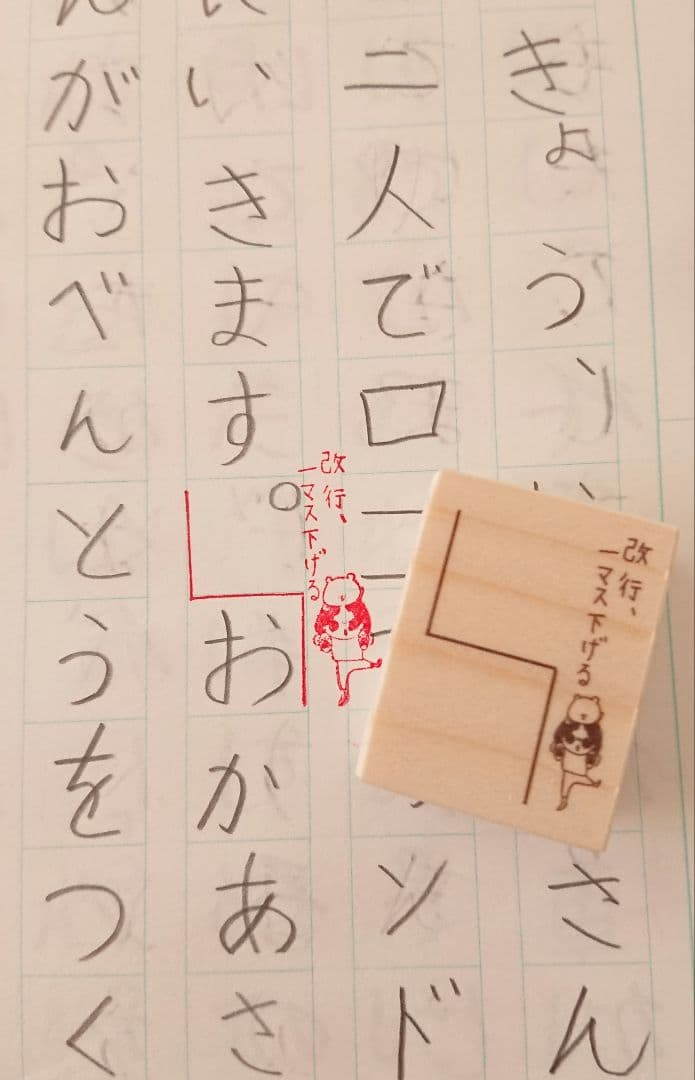 きょう、
さん
二人で口
ンド
いきます。
おかあさ
がおべんとうをつく
改行、
一マス下げる
改行、
一マス下げる